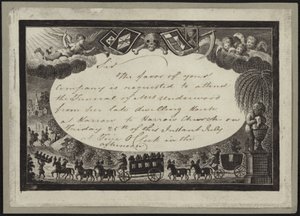 Sir
The favor of your
Company is requested to attend
the Funeral of Mrs Underwood
from her late dwelling House
at Harrow to Harrow Church on
Friday 25th of this Instant July
at Five O'Clock in the
afternoon